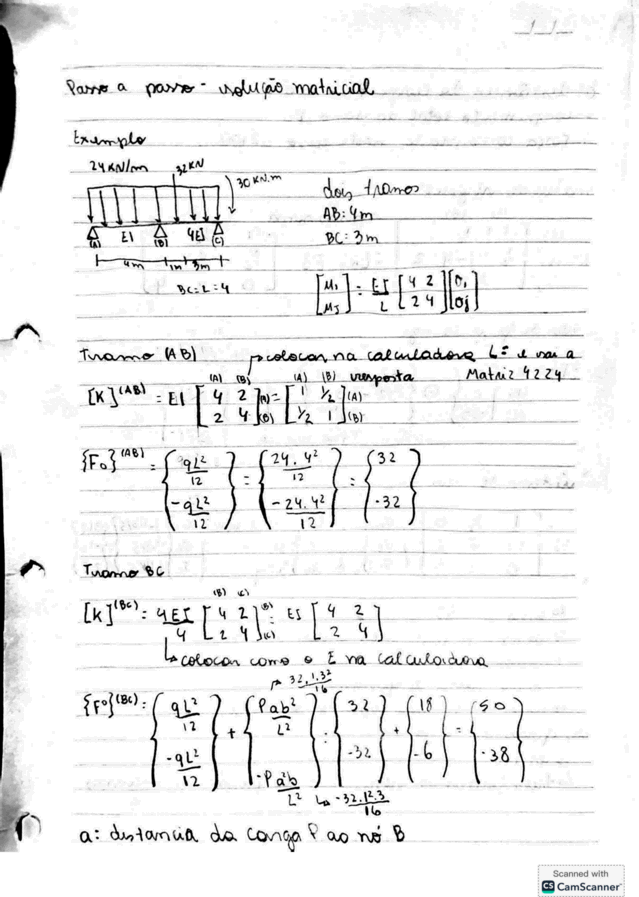 Passo a passo - solução matricial
Exemplo
24 KN/m 32 KN 30 KN.m
dois tramos
AB: 4m
BC: 3m
(A) EI (B) 4EI (C)
4m 1m 3m
BC = L = 4
[Mi Mj] = EI/L [4 2 2 4] [θi θj]
Tramo (AB) colocar na calculadora L= e vai a
resposta Matriz 4 2 2 4
[K]^(AB) = EI [4 2 2 4] (A) (B) = [1 1/2 1/2 1] (A) (B)
{F₀}^(AB) = {qL²/12 -qL²/12} = {24.4²/12 -24.4²/12} = {32 -32}
Tramo BC
[K]^(BC) = 4EI/4 [4 2 2 4] (B) (C) = EI [4 2 2 4]
colocar como o E na calculadora
32.1.3²/16
{F⁰}^(BC) = {qL²/12 -qL²/12} + {Pab²/L² -Pa²b/L²} = {32 -32} + {18 -6} = {50 -38}
-32.1².3/16
a: distancia da carga P ao nó B
Scanned with
CS CamScanner